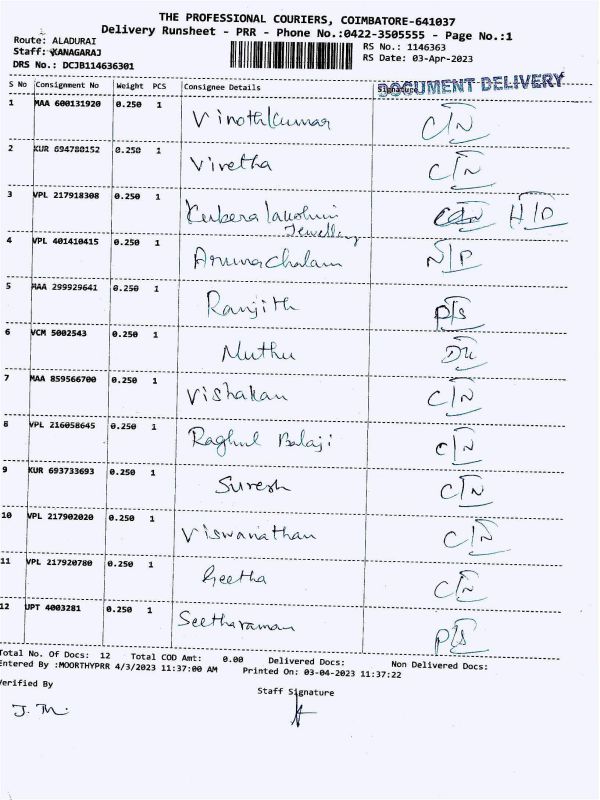 THE PROFESSIONAL COURIERS, COIMBATORE-641037
Delivery Runsheet - PRR - Phone No.:0422-3505555 - Page No.:1
Route: ALADURAI
Staff: KANAGARAJ
DRS No.: DCJB114636301
RS No.: 1146363
RS Date: 03-Apr-2023
S No Consignment No Weight PCS Consignee Details Signature DOCUMENT DELIVERY
1 MAA 600131920 0.250 1 Vinothkumar C/N
2 KUR 694780152 0.250 1 Viretha C/N
3 VPL 217918308 0.250 1 Kuberalakshmi H/D
Jewellery
4 VPL 401410415 0.250 1 Arunachalam N/P
5 MAA 299929641 0.250 1 Ranjith P/S
6 VCM 5002543 0.250 1 Muthu
7 MAA 859566700 0.250 1 Vishakan C/N
8 VPL 216058645 0.250 1 Raghul Balaji C/N
9 KUR 693733693 0.250 1 Suresh C/N
10 VPL 217902020 0.250 1 Viswanathan C/N
11 VPL 217920780 0.250 1 Geetha C/N
12 UPT 4003281 0.250 1 Seetharaman P/S
Total No. Of Docs: 12 Total COD Amt: 0.00 Delivered Docs: Non Delivered Docs:
Entered By :MOORTHYPRR 4/3/2023 11:37:00 AM Printed On: 03-04-2023 11:37:22
Verified By
Staff Signature